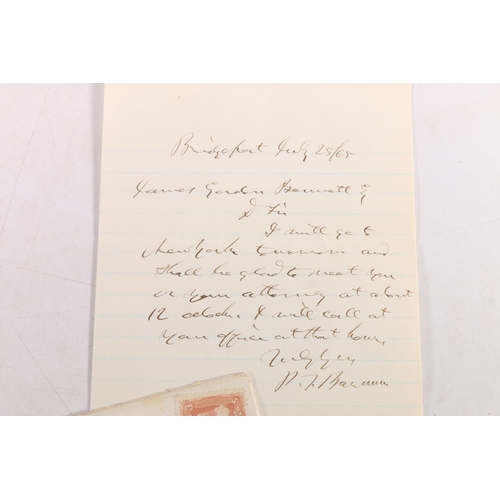 Bridgeport July 25/65
James Gordon Bennett Eq
D Sir
I will go to
New York tomorrow and
shall be glad to meet you
or your attorney at about
12 oclock. I will call at
your office at that hour.
Truly Yrs
P. T. Barnum